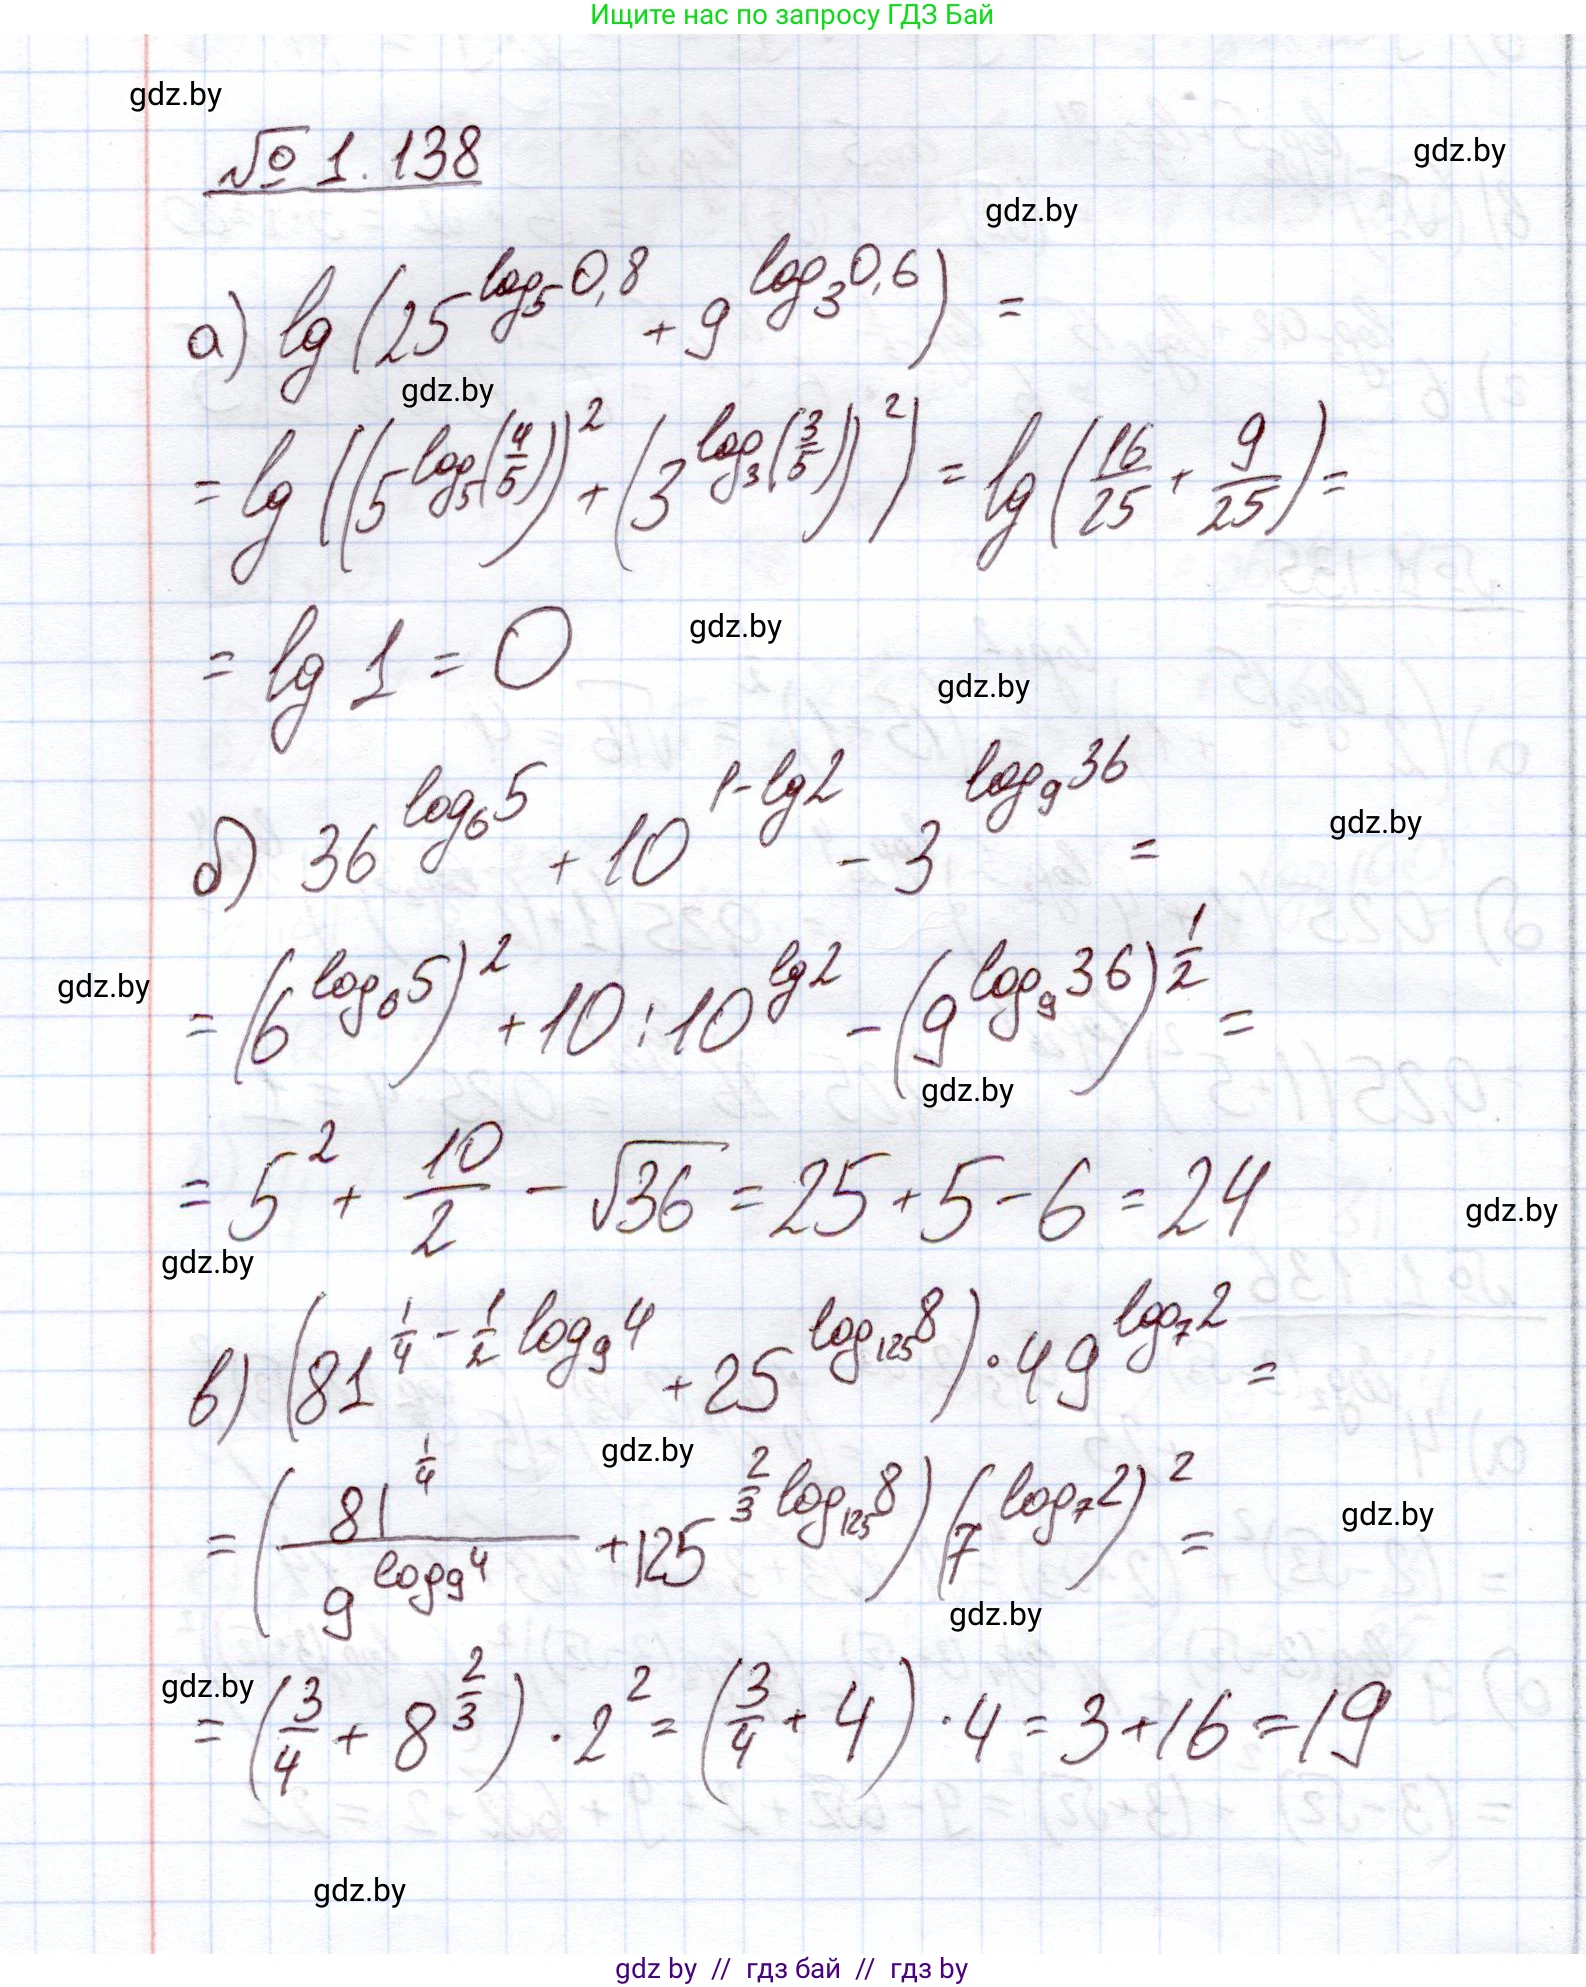 Ищите нас по запросу ГДЗ Бай
gdz.by
№ 1.138
gdz.by
gdz.by
а) lg (25^(log₅ 0,8) + 9^(log₃ 0,6)) =
gdz.by
= lg ((5^(log₅ (4/5)))² + (3^(log₃ (3/5)))²) = lg (16/25 + 9/25) =
= lg 1 = 0
gdz.by
gdz.by
б) 36^(log₆ 5) + 10^(1-lg 2) - 3^(log₉ 36) =
gdz.by
gdz.by
= (6^(log₆ 5))² + 10 : 10^(lg 2) - (9^(log₉ 36))^(1/2) =
gdz.by
= 5² + 10/2 - √36 = 25 + 5 - 6 = 24
gdz.by
gdz.by
в) (81^(1/4 - 1/2 log₉ 4) + 25^(log₁₂₅ 8)) · 49^(log₇ 2) =
gdz.by
= (81^(1/4) / 9^(log₉ 4) + 125^(2/3 log₁₂₅ 8)) (7^(log₇ 2))² =
gdz.by
gdz.by
gdz.by
= (3/4 + 8^(2/3)) · 2² = (3/4 + 4) · 4 = 3 + 16 = 19
gdz.by
gdz by // гдз бай // гдз by